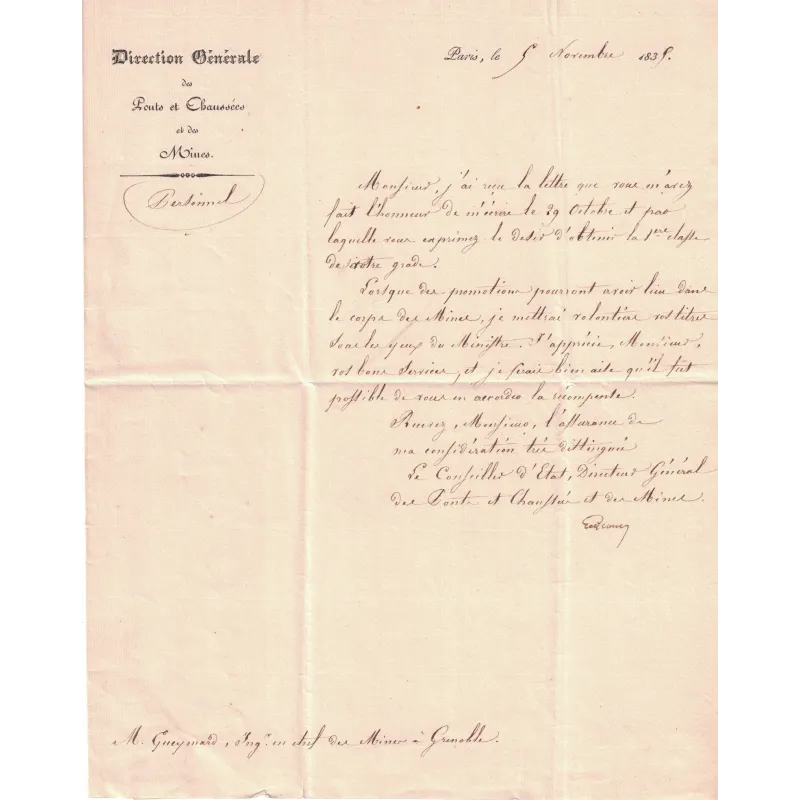 Direction Générale
des
Ponts et Chaussées
et des
Mines.
Personnel
Paris, le 5 Novembre 1835.
Monsieur, j'ai reçu la lettre que vous m'avez
fait l'honneur de m'écrire le 29 Octobre et par
laquelle vous exprimez le desir d'obtenir la 1ere classe
de votre grade.
Lorsque des promotions pourront avoir lieu dans
le corps des Mines, je mettrai volontiers vos titres
sous les yeux du Ministre. J'apprécie, Monsieur,
vos bons services, et je serais bien aise qu'il fut
possible de vous en accorder la récompense.
Recevez, Monsieur, l'assurance de
ma considération très distinguée
Le Conseiller d'Etat, Directeur Général
des Ponts et Chaussées et des Mines.
M. Gueymard, Ingr. en chef des Mines à Grenoble.